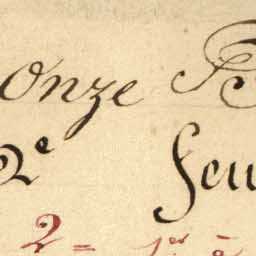 onze
2e feu
2 = 1er